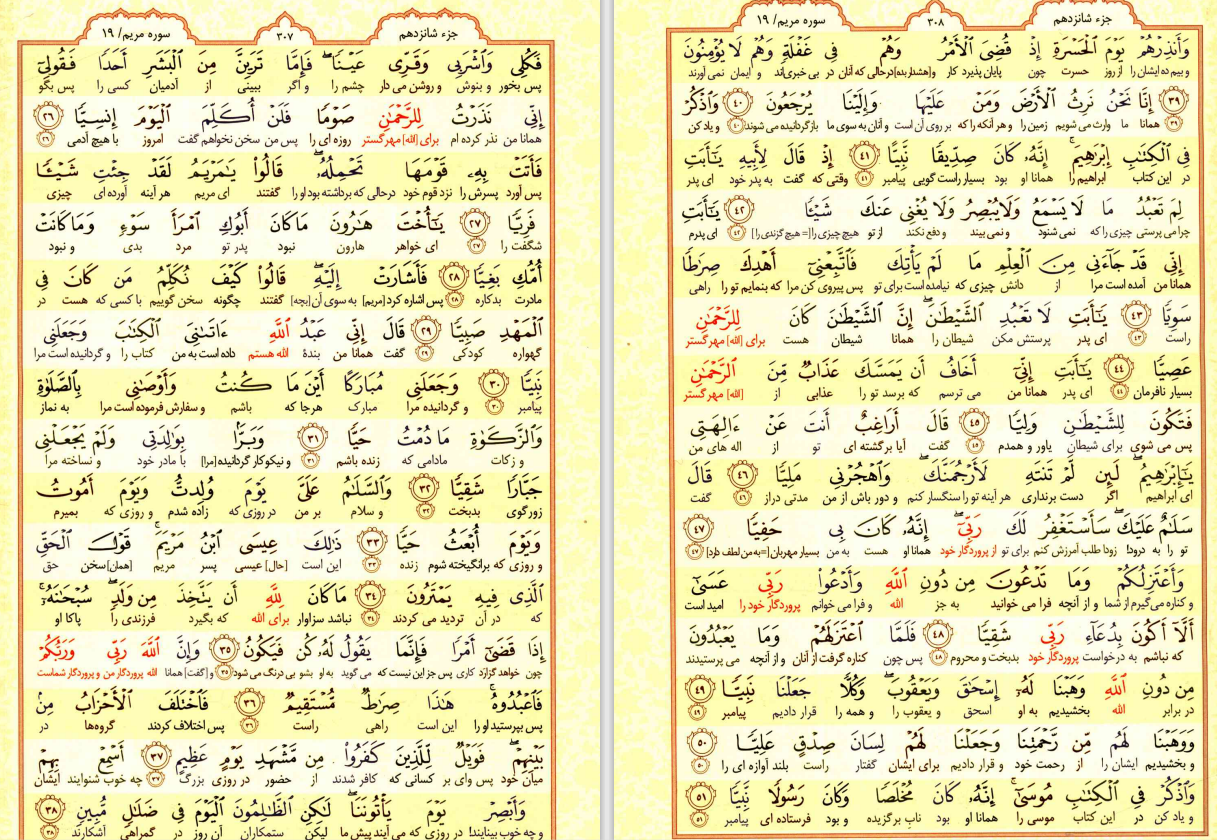 جزء شانزدهم ۳۰۷ سوره مریم/ ۱۹
فَكُلِي وَاشْرَبِي وَقَرِّي عَيْنًا ۖ فَإِمَّا تَرَيِنَّ مِنَ الْبَشَرِ أَحَدًا فَقُولِي
پس بخور و بنوش و روشن می دار چشم را و اگر ببینی از آدمیان کسی را پس بگو
إِنِّي نَذَرْتُ لِلرَّحْمَٰنِ صَوْمًا فَلَنْ أُكَلِّمَ الْيَوْمَ إِنسِيًّا ۲۶
همانا من نذر کرده ام برای [الله] مهرگستر روزه ای را پس من سخن نخواهم گفت امروز با هیچ آدمی ۲۶
فَأَتَتْ بِهِ قَوْمَهَا تَحْمِلُهُ ۖ قَالُوا يَا مَرْيَمُ لَقَدْ جِئْتِ شَيْئًا
پس آورد پسرش را نزد قوم خود درحالی که برداشته بود او را گفتند ای مریم هر آینه آورده ای چیزی
فَرِيًّا ۲۷ يَا أُخْتَ هَارُونَ مَا كَانَ أَبُوكِ امْرَأَ سَوْءٍ وَمَا كَانَتْ
شگفت را ۲۷ ای خواهر هارون نبود پدر تو مرد بدی و نبود
أُمُّكِ بَغِيًّا ۲۸ فَأَشَارَتْ إِلَيْهِ ۖ قَالُوا كَيْفَ نُكَلِّمُ مَن كَانَ فِي
مادرت بدکاره ۲۸ پس اشاره کرد [مریم] به سوی آن [بچه] گفتند چگونه سخن گوییم با کسی که هست در
الْمَهْدِ صَبِيًّا ۲۹ قَالَ إِنِّي عَبْدُ اللَّهِ آتَانِيَ الْكِتَابَ وَجَعَلَنِي
گهواره کودکی ۲۹ گفت همانا من بندهٔ الله هستم داده است به من کتاب را و گردانیده است مرا
نَبِيًّا ۳۰ وَجَعَلَنِي مُبَارَكًا أَيْنَ مَا كُنتُ وَأَوْصَانِي بِالصَّلَاةِ
پیامبر ۳۰ و گردانیده مرا مبارک هرجا که باشم و سفارش فرموده است مرا به نماز
وَالزَّكَاةِ مَا دُمْتُ حَيًّا ۳۱ وَبَرًّا بِوَالِدَتِي وَلَمْ يَجْعَلْنِي
و زکات مادامی که زنده باشم ۳۱ و نیکوکار گردانیده [مرا] با مادر خود و نساخته مرا
جَبَّارًا شَقِيًّا ۳۲ وَالسَّلَامُ عَلَيَّ يَوْمَ وُلِدتُّ وَيَوْمَ أَمُوتُ
زورگوی بدبخت ۳۲ و سلام بر من در روزی که زاده شدم و روزی که بمیرم
وَيَوْمَ أُبْعَثُ حَيًّا ۳۳ ذَٰلِكَ عِيسَى ابْنُ مَرْيَمَ ۚ قَوْلَ الْحَقِّ
و روزی که برانگیخته شوم زنده ۳۳ این است [حال] عیسی پسر مریم [همان] سخن حق
الَّذِي فِيهِ يَمْتَرُونَ ۳۴ مَا كَانَ لِلَّهِ أَن يَتَّخِذَ مِن وَلَدٍ ۖ سُبْحَانَهُ ۚ
که در آن تردید می کردند ۳۴ نباشد سزاوار برای الله که بگیرد فرزندی را پاکا او
إِذَا قَضَىٰ أَمْرًا فَإِنَّمَا يَقُولُ لَهُ كُن فَيَكُونُ ۳۵ وَإِنَّ اللَّهَ رَبِّي وَرَبُّكُمْ
چون خواهد گزارد کاری پس جز این نیست که می گوید به او بشو بی درنگ می شود ۳۵ و [گفت] همانا الله پروردگار من و پروردگار شماست
فَاعْبُدُوهُ ۚ هَٰذَا صِرَاطٌ مُّسْتَقِيمٌ ۳۶ فَاخْتَلَفَ الْأَحْزَابُ مِن
پس بپرستید او را این است راهی راست ۳۶ پس اختلاف کردند گروه‌ها در
بَيْنِهِمْ ۖ فَوَيْلٌ لِّلَّذِينَ كَفَرُوا مِن مَّشْهَدِ يَوْمٍ عَظِيمٍ ۳۷ أَسْمِعْ بِهِمْ
میان خود پس وای بر کسانی که کافر شدند از حضور در روزی بزرگ ۳۷ چه خوب شنوایند ایشان
وَأَبْصِرْ يَوْمَ يَأْتُونَنَا ۖ لَٰكِنِ الظَّالِمُونَ الْيَوْمَ فِي ضَلَالٍ مُّبِينٍ ۳۸
و چه خوب بینایند! در روزی که می آیند پیش ما لیکن ستمکاران آن روز در گمراهی آشکارند ۳۸
جزء شانزدهم ۳۰۸ سوره مریم/ ۱۹
وَأَنذِرْهُمْ يَوْمَ الْحَسْرَةِ إِذْ قُضِيَ الْأَمْرُ وَهُمْ فِي غَفْلَةٍ وَهُمْ لَا يُؤْمِنُونَ
و بیم ده ایشان را از روز حسرت چون پایان پذیرد کار و [هشدار بده] درحالی که آنان در بی خبری اند و ایمان نمی آورند
۳۹ إِنَّا نَحْنُ نَرِثُ الْأَرْضَ وَمَنْ عَلَيْهَا وَإِلَيْنَا يُرْجَعُونَ ۴۰ وَاذْكُرْ
۳۹ همانا ما وارث می شویم زمین را و هر آنکه را که بر روی آن است و آنان به سوی ما بازگردانیده می شوند ۴۰ و یاد کن
فِي الْكِتَابِ إِبْرَاهِيمَ ۚ إِنَّهُ كَانَ صِدِّيقًا نَّبِيًّا ۴۱ إِذْ قَالَ لِأَبِيهِ يَا أَبَتِ
در این کتاب ابراهیم را همانا او بود بسیار راست گویی پیامبر ۴۱ وقتی که گفت به پدر خود ای پدر
لِمَ تَعْبُدُ مَا لَا يَسْمَعُ وَلَا يُبْصِرُ وَلَا يُغْنِي عَنكَ شَيْئًا ۴۲ يَا أَبَتِ
چرا می پرستی چیزی را که نمی شنود و نمی بیند و دفع نکند از تو هیچ چیزی را [= هیچ گزندی را] ۴۲ ای پدرم
إِنِّي قَدْ جَاءَنِي مِنَ الْعِلْمِ مَا لَمْ يَأْتِكَ فَاتَّبِعْنِي أَهْدِكَ صِرَاطًا
همانا من آمده است مرا از دانش چیزی که نیامده است برای تو پس پیروی کن مرا که بنمایم تو را راهی
سَوِيًّا ۴۳ يَا أَبَتِ لَا تَعْبُدِ الشَّيْطَانَ ۖ إِنَّ الشَّيْطَانَ كَانَ لِلرَّحْمَٰنِ
راست ۴۳ ای پدر پرستش مکن شیطان را همانا شیطان هست برای [الله] مهرگستر
عَصِيًّا ۴۴ يَا أَبَتِ إِنِّي أَخَافُ أَن يَمَسَّكَ عَذَابٌ مِّنَ الرَّحْمَٰنِ
بسیار نافرمان ۴۴ ای پدر همانا من می ترسم که برسد تو را عذابی از [الله] مهرگستر
فَتَكُونَ لِلشَّيْطَانِ وَلِيًّا ۴۵ قَالَ أَرَاغِبٌ أَنتَ عَنْ آلِهَتِي
پس می شوی برای شیطان یاور و همدم ۴۵ گفت آیا برگشته ای تو از اله های من
يَا إِبْرَاهِيمُ ۖ لَئِن لَّمْ تَنتَهِ لَأَرْجُمَنَّكَ ۖ وَاهْجُرْنِي مَلِيًّا ۴۶ قَالَ
ای ابراهیم اگر دست برنداری هر آینه تو را سنگسار کنم و دور باش از من مدتی دراز ۴۶ گفت
سَلَامٌ عَلَيْكَ ۖ سَأَسْتَغْفِرُ لَكَ رَبِّي ۖ إِنَّهُ كَانَ بِي حَفِيًّا ۴۷
تو را به درود! زودا طلب آمرزش کنم برای تو از پروردگار خود همانا او هست به من بسیار مهربان [= به من لطف دارد] ۴۷
وَأَعْتَزِلُكُمْ وَمَا تَدْعُونَ مِن دُونِ اللَّهِ وَأَدْعُو رَبِّي عَسَىٰ
و کناره می گیرم از شما و از آنچه فرا می خوانید به جز الله و فرا می خوانم پروردگار خود را امید است
أَلَّا أَكُونَ بِدُعَاءِ رَبِّي شَقِيًّا ۴۸ فَلَمَّا اعْتَزَلَهُمْ وَمَا يَعْبُدُونَ
که نباشم به درخواست پروردگار خود بدبخت و محروم ۴۸ پس چون کناره گرفت از آنان و از آنچه می پرستیدند
مِن دُونِ اللَّهِ وَهَبْنَا لَهُ إِسْحَاقَ وَيَعْقُوبَ ۖ وَكُلًّا جَعَلْنَا نَبِيًّا ۴۹
در برابر الله بخشیدیم به او اسحق و یعقوب را و همه را قرار دادیم پیامبر ۴۹
وَوَهَبْنَا لَهُم مِّن رَّحْمَتِنَا وَجَعَلْنَا لَهُمْ لِسَانَ صِدْقٍ عَلِيًّا ۵۰
و بخشیدیم ایشان را از رحمت خود و قرار دادیم برای ایشان گفتار راست بلند آوازه ای را ۵۰
وَاذْكُرْ فِي الْكِتَابِ مُوسَىٰ ۚ إِنَّهُ كَانَ مُخْلَصًا وَكَانَ رَسُولًا نَّبِيًّا ۵۱
و یاد کن در این کتاب موسی را همانا او بود ناب برگزیده و بود فرستاده ای پیامبر ۵۱